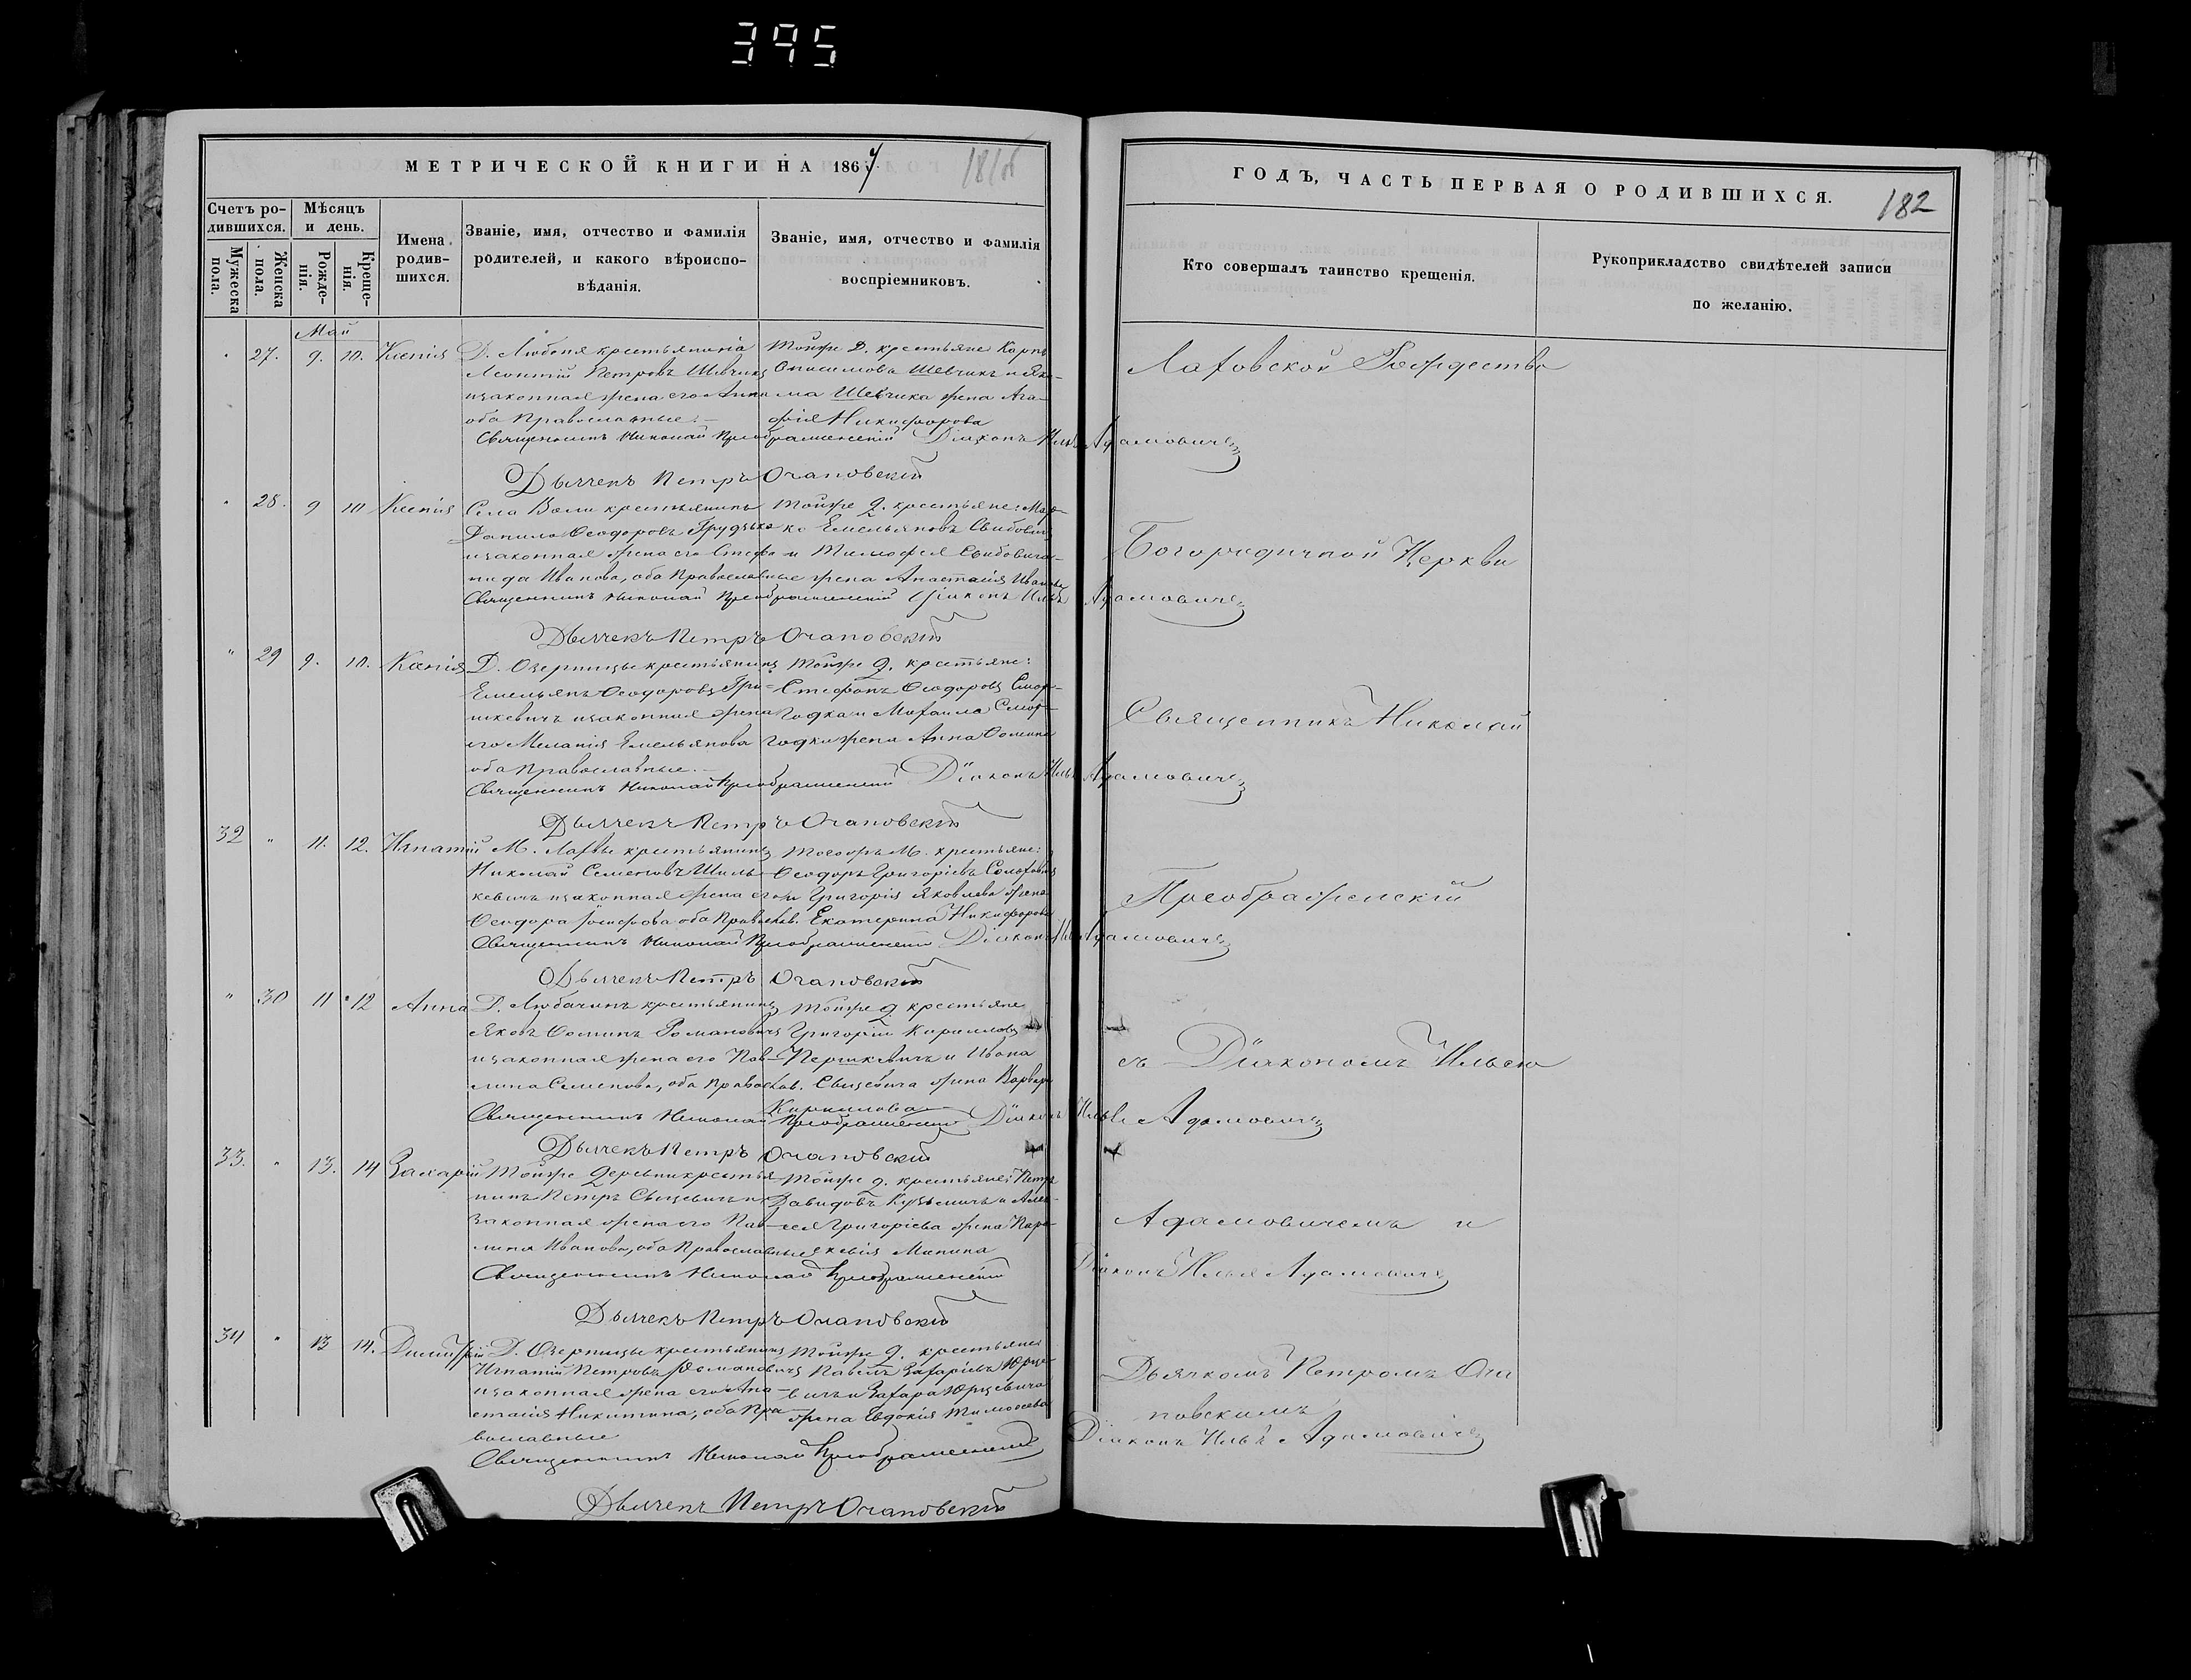 395
МЕТРИЧЕСКОЙ КНИГИ НА 1867
181об
ГОДЪ, ЧАСТЬ ПЕРВАЯ О РОДИВШИХСЯ.
182
Счетъ ро-
дившихся.
Мѣсяцъ
и день.
Мужеска
пола.
Женска
пола.
Рожде-
нія.
Креще-
нія.
Имена
родив-
шихся.
Званіе, имя, отчество и фамилія
родителей, и какого вѣроиспо-
вѣданія.
Званіе, имя, отчество и фамилія
воспріемниковъ.
Кто совершалъ таинство крещенія.
Рукоприкладство свидѣтелей записи
по желанію.
Май
27. 9. 10. Ксенія
Леонтій Петровъ Шевчикъ
изаконная жена его Анна
оба Православные.
Тойже Д. крестьяне Карпъ
Онисимовъ Шевчикъ и Яко-
ма Шевчика жена Ага-
фія Никифорова
Священникъ Николай Преображенскій Діаконъ Илья Адамовичъ
Дьячекъ Петръ Очаповскій
" 28. 9 10 Ксенія
Села Воли крестьянинъ
Данило Ѳеодоровъ Грудько
изаконная жена его Стефа-
нида Иванова, оба Православные
Тойже д. крестьяне: Мар-
ко Емельяновъ Свибовичъ
и Тимофея Свибовича
жена Анастасія Иванова
Священникъ Николай Преображенскій Діаконъ Илья Адамовичъ
Дьячекъ Петръ Очаповскій
" 29 9. 10. Ксенія
Д. Озерницы крестьянинъ
Емельянъ Ѳеодоровъ Гри-
шкевичъ изаконная жена
его Меланія Емельянова
оба Православные.
Тойже д. крестьяне:
Стефанъ Ѳеодоровъ Смор-
годка и Михаила Смор-
годки жена Анна Ѳомина
Священникъ Николай Преображенскій Діаконъ Илья Адамовичъ
Дьячекъ Петръ Очаповскій
32 " 11. 12. Игнатій
М. Лахвы крестьянинъ
Николай Семеновъ Шиль-
кевичъ изаконная жена его
Ѳеодора Іосифова оба Православ.
Тогожъ М. крестьяне:
Ѳеодоръ Григоріевъ
и Григорія Яковлева жена
Екатерина Никифорова
Священникъ Николай Преображенскій Діаконъ Илья Адамовичъ
Дьячекъ Петръ Очаповскій
" 30 11 12 Анна
Д. Любачинъ крестьянинъ
Яковъ Ѳоминъ Романовичъ
изаконная жена его Пав-
лина Семенова, оба Православ.
Тойже д. крестьяне
Григорій Кирилловъ
и Ивана
Свицевича жена Варвара
Кириллова
Священникъ Николай Преображенскій Діаконъ Илья Адамовичъ
Дьячекъ Петръ Очаповскій
33. " 13. 14 Захарій
Тойже деревни крестья-
нинъ Петръ Свицевичъ и
законная жена его Пав-
лина Иванова, оба Православные
Тойже д. крестьяне: Петръ
Давидовъ Кузьмичъ и Алек-
сея Григоріева жена Пара-
скевія Минина
Священникъ Николай Преображенскій Діаконъ Илья Адамовичъ
Дьячекъ Петръ Очаповскій
34 " 13 14. Димитрій
Д. Озерницы крестьянинъ
Игнатій Петровъ Романовичъ
изаконная жена его Ана-
стасія Никитина, оба Пра-
вославные
Тойже д. крестьяне
Павелъ Захаріевъ Юрце-
вичъ и Захара Юрцевича
жена Евдокія Тимоѳеева
Священникъ Николай Преображенскій Діаконъ Илья Адамовичъ
Дьячекъ Петръ Очаповскій
Лахвовской Рождество
Богородичной Церкви
Священникъ Николай
Преображенскій
съ Діакономъ Ильею
Адамовичемъ и
Дьячкомъ Петромъ Оча
повскимъ